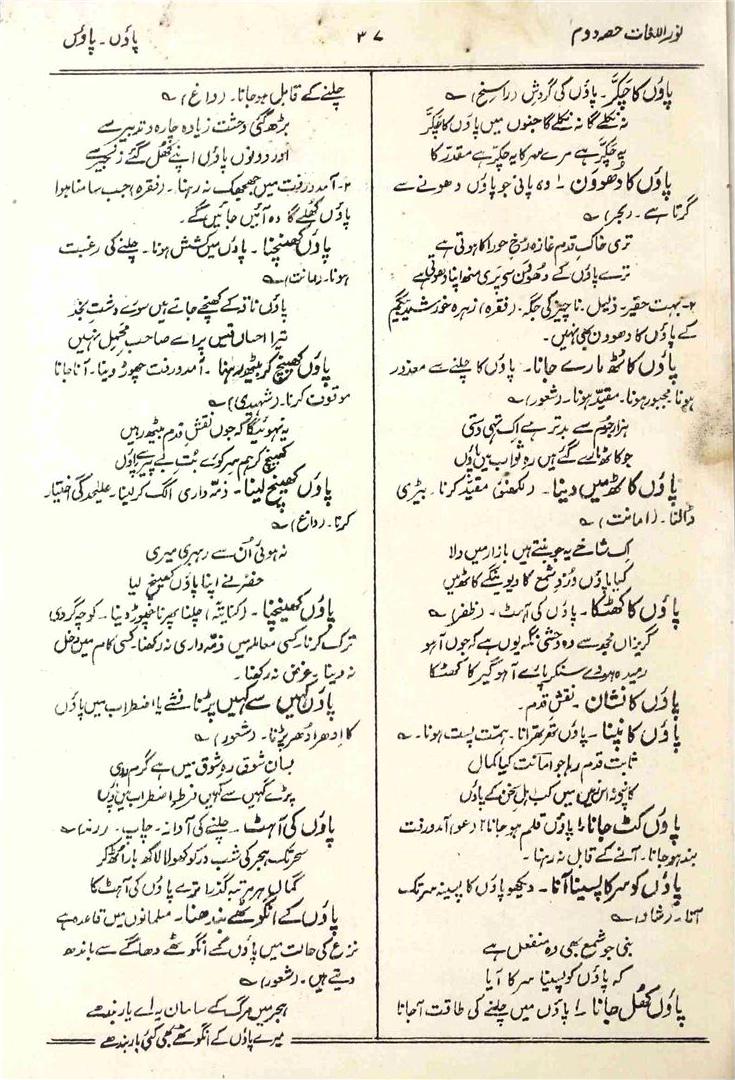 نور اللغات حصہ دوم
۳۷
پاؤں۔ پاؤس
پاؤں کا چکّر۔ پاؤں کی گردش (راسخ) ؎
نہ نکلے گا نہ نکلے گا جنوں میں پاؤں کا چکّر
یہ چکّر ہے مرے سر کا یہ چکّر ہے مقدّر کا
پاؤں کا دھووَن (۱) وہ پانی جو پاؤں دھونے سے
گرتا ہے۔ (بحر) ؎
تری خاکِ قدم غازہ رخِ حور کا ہوتی ہے
ترے پاؤں کے دھوون سے پری منھ اپنا دھوتی ہے
۲۔ بہت حقیر۔ ذلیل۔ ناچیز کی جگہ۔ (فقرہ) زہرہ خورشید بیگم
کے پاؤں کا دھوون بھی نہیں۔
پاؤں کاٹھ مارے جانا۔ پاؤں کا چلنے سے معذور
ہونا مجبور ہونا۔ مقیّد ہونا۔ (شعور) ؎
ہزار جرم سے بدتر ہے اک تہی دستی
جو کاٹھ مارے گئے ہیں رہِ ثواب میں پاؤں
پاؤں کاٹھ میں دینا۔ (لکھنؤ) مقیّد کرنا۔ بیڑی
ڈالنا۔ (امانت) ؎
اک شاخ سے یہ جو بنتے ہیں بازار میں دلا
کیا پاؤں دُزدِ شمع کا دیوینگے کاٹھ میں
پاؤں کا کھٹکا۔ پاؤں کی آہٹ۔ (ظفر) ؎
گریزاں مجھ سے وہ وحشی نگہ یوں ہے کہ جوں آہو
رمیدہ ہووے سنکر پائے آہو گیر کا کھٹکا
پاؤں کا نشان۔ نقشِ قدم۔
پاؤں کانپنا۔ پاؤں تھرتھرانا۔ ہمّت پست ہونا۔ ؎
ثابت قدم رہا جو امانت کیا کمال
کانپے نہ اس زمیں میں کب اہلِ سخن کے پاؤں
پاؤں کٹ جانا (۱) پاؤں قلم ہو جانا ۲ (عو) آمد و رفت
بند ہو جانا۔ آنے کے قابل نہ رہنا۔
پاؤں کو سر کا پسینا آنا۔ دیکھو پاؤں کا پسینہ سر تک
آنا۔ (رشاد) ؎
بنی جو شمع بھی وہ منفعل ہے
کہ پاؤں کو پسینا سر کا آیا
پاؤں کھل جانا (۱) پاؤں میں چلنے کی طاقت آجانا
چلنے کے قابل ہو جانا۔ (داغ) ؎
بڑھ گئی وحشت زیادہ چارہ و تدبیر سے
اور دونوں پاؤں اپنے کھل گئے زنجیر سے
۲۔ آمد و رفت میں جھجھک نہ رہنا۔ (فقرہ) جب سامنا ہوا
پاؤں کھلے گا وہ آئیں جائیں گے۔
پاؤں کھنچنا۔ پاؤں میں کشش ہونا۔ چلنے کی رغبت
ہونا۔ (امانت) ؎
پاؤں ناقہ کے کھنچے جاتے ہیں سوئے دشتِ نجد
تیرا احساں قیس پر اے صاحبِ محمل نہیں
پاؤں کھینچ کر بیٹھ رہنا۔ آمد و رفت چھوڑ دینا۔ آنا جانا
موقوف کرنا۔ (شہیدی) ؎
یہ نہ ہوئیگا کہ جوں نقشِ قدم بیٹھ رہیں
کھینچ کر ہم سرِ کوئے بُتِ بے پیر سے پاؤں
پاؤں کھینچ لینا۔ ذمّہ داری الگ کر لینا۔ علیحدگی اختیار
کرنا۔ (داغ) ؎
نہ ہوئی اُن سے رہبری میری
خضر نے اپنا پاؤں کھینچ لیا
پاؤں کھینچنا۔ (کنایتہً) چلنا پھرنا چھوڑ دینا۔ کوچہ گردی
ترک کرنا۔ کسی معاملہ میں ذمّہ داری نہ رکھنا۔ کسی کام میں دخل
نہ دینا۔ غرض نہ رکھنا۔
پاؤں کہیں سے کہیں پڑنا نشے یا اضطراب میں پاؤں
کا اِدھر اُدھر پڑنا۔ (شعور) ؎
بسانِ شوق رہِ شوق میں ہے گرم روی
پڑے کہیں سے کہیں فرطِ اضطراب میں پاؤں
پاؤں کی آہٹ۔ چلنے کی آواز۔ چاپ۔ (رند) ؎
سحر تک ہجر کی شب در کو کھولا لاکھ بار اُٹھ کر
گماں ہر مرتبہ گذرا ترے پاؤں کی آہٹ کا
پاؤں کے انگوٹھے بندھنا۔ مسلمانوں میں قاعدہ ہے
نزع کی حالت میں پاؤں کے انگوٹھے دھاگے سے باندھ
دیتے ہیں۔ (شعور) ؎
ہجر میں مرگ کے سامان یہ اے یار بندھے
میرے پاؤں کے انگوٹھے بھی کئی بار بندھے